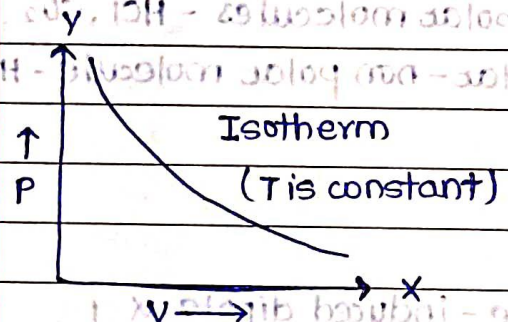 y
Isotherm
↑
P
(T is constant)
X
V →